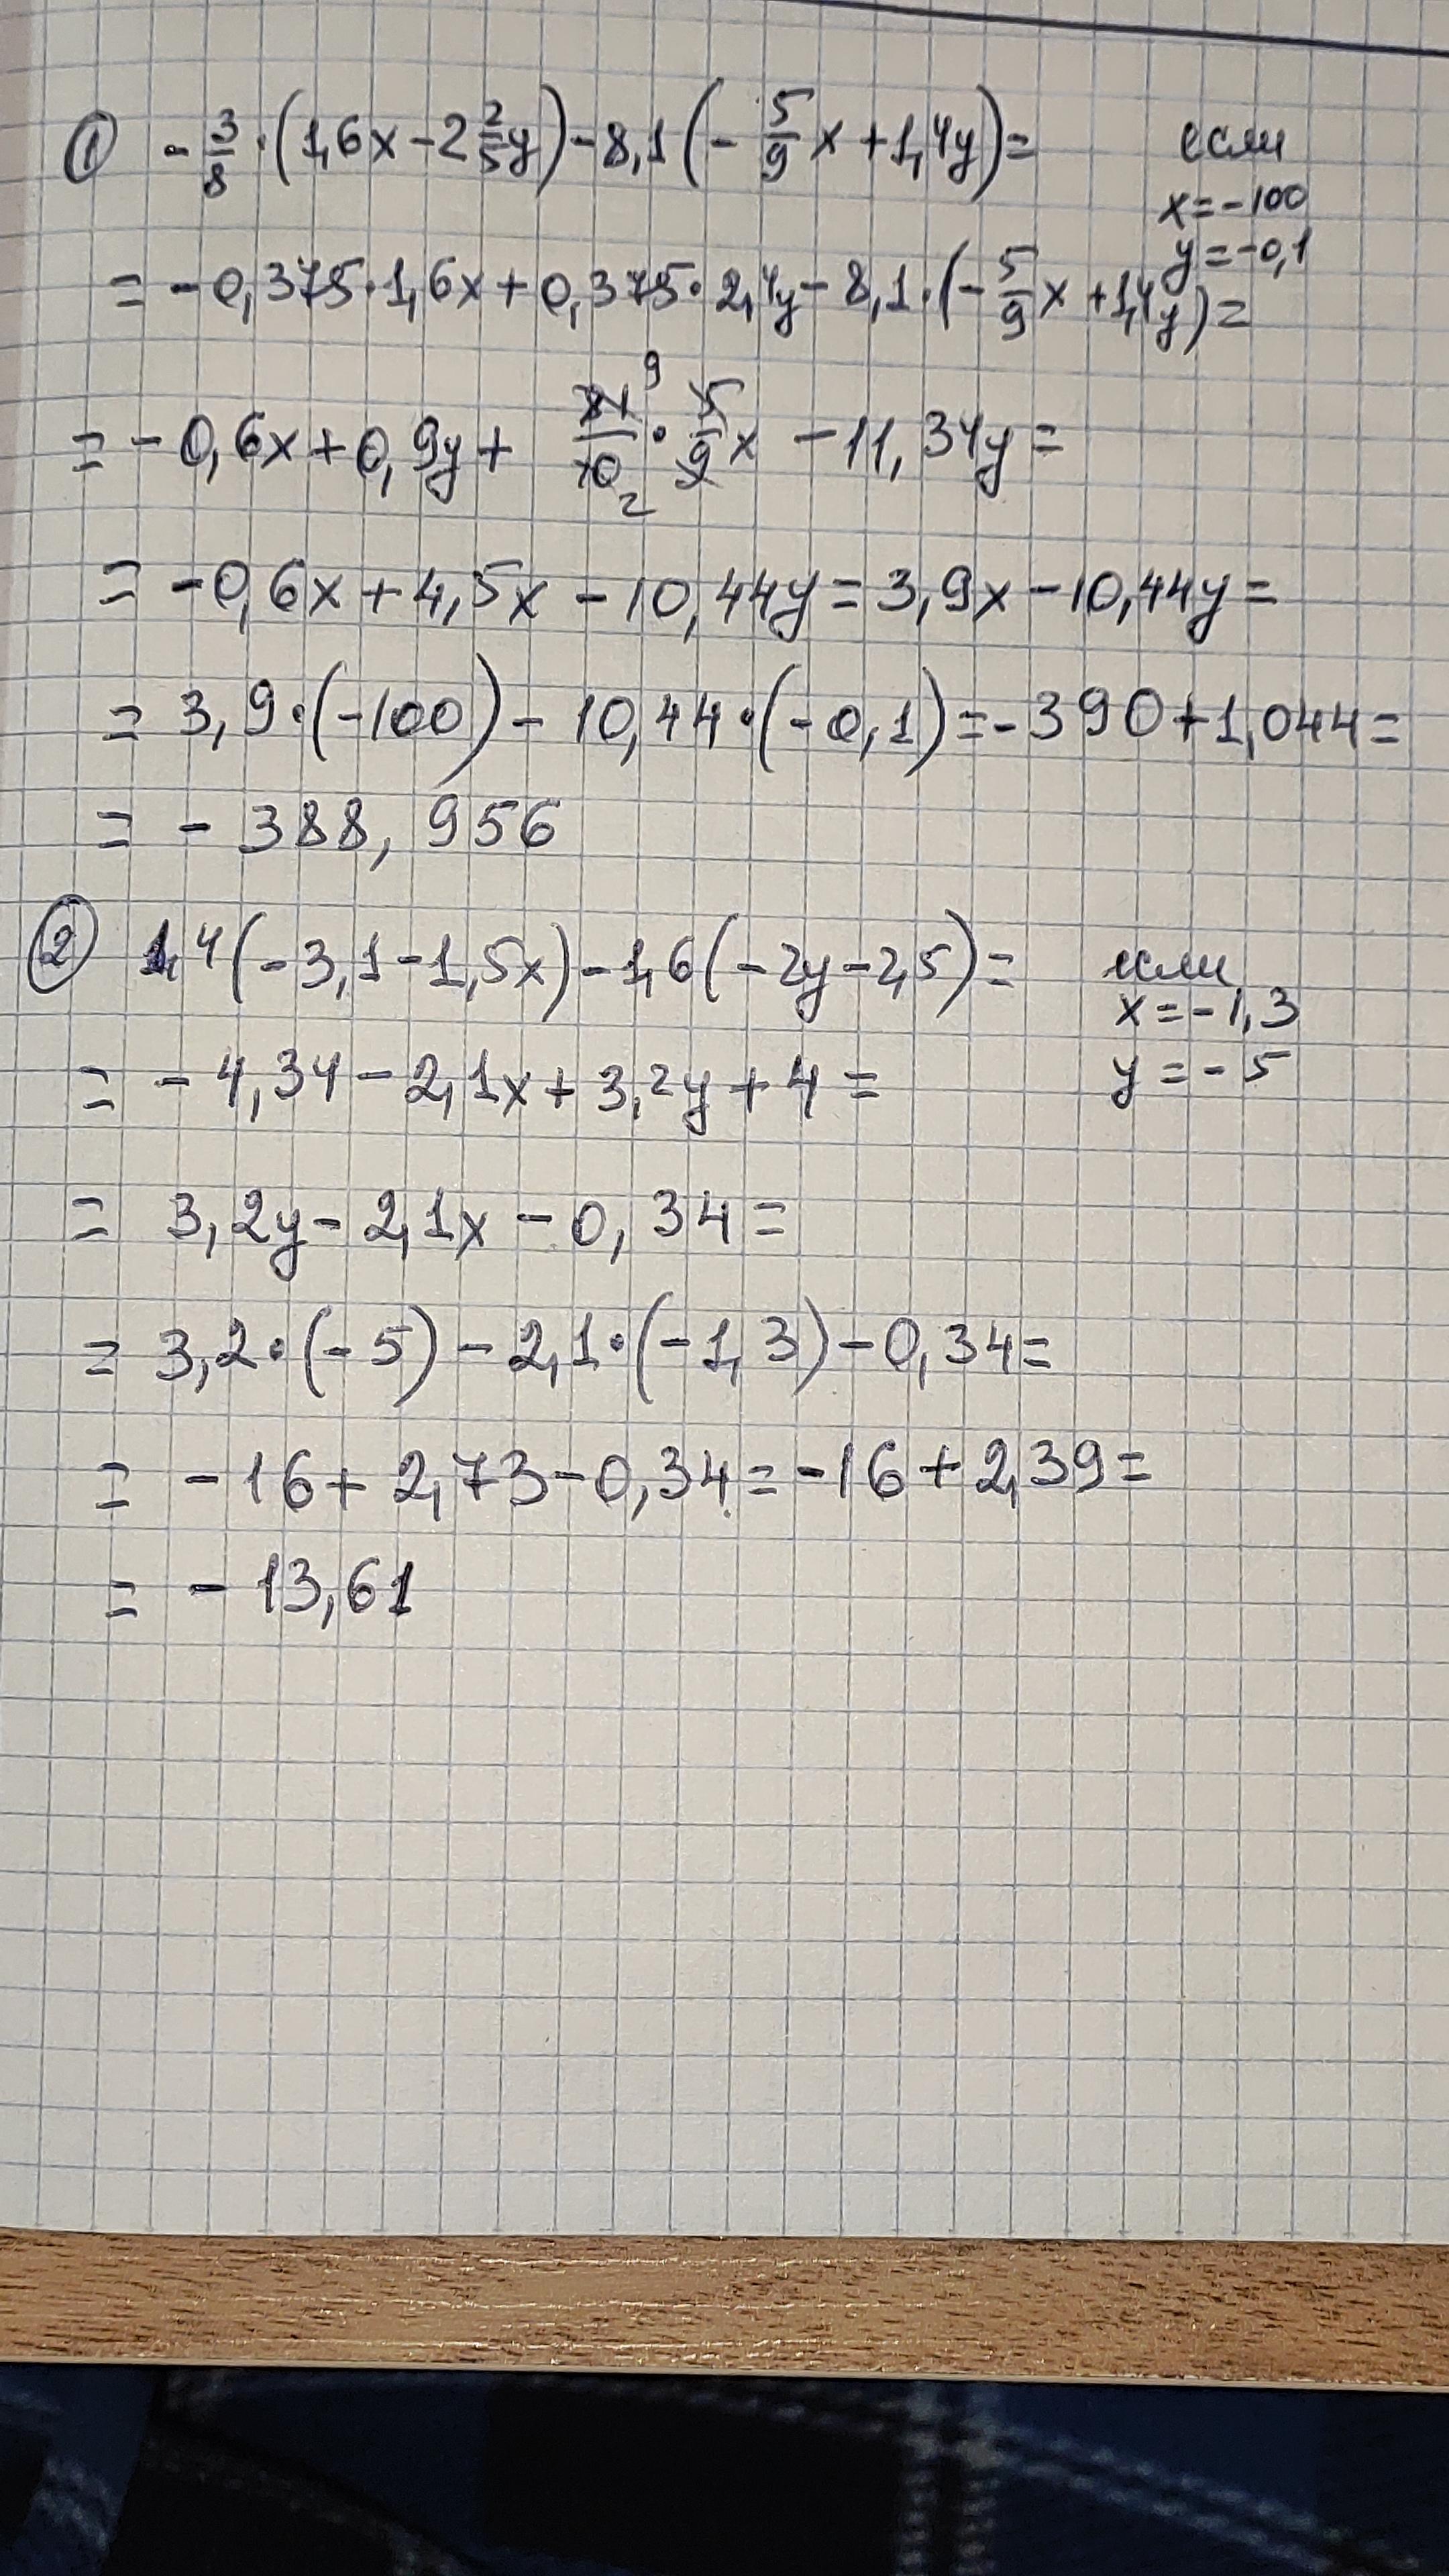 ① -3/8·(1,6x-2 2/5y)-8,1(-5/9x+1,4y)= если
x=-100
y=-0,1
=-0,375·1,6x+0,375·2,4y-8,1·(-5/9x+1,4y)=
=-0,6x+0,9y+ 81⁹/10₂·5/9x-11,34y=
=-0,6x+4,5x-10,44y=3,9x-10,44y=
=3,9·(-100)-10,44·(-0,1)=-390+1,044=
=-388,956
② 1,4(-3,1-1,5x)-1,6(-2y-2,5)= если
x=-1,3
=-4,34-2,1x+3,2y+4= y=-5
=3,2y-2,1x-0,34=
=3,2·(-5)-2,1·(-1,3)-0,34=
=-16+2,73-0,34=-16+2,39=
=-13,61